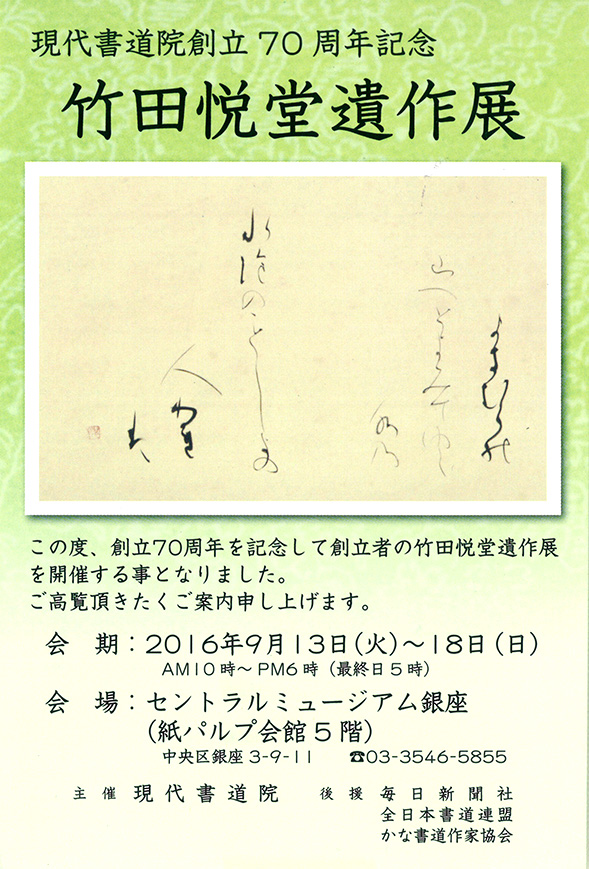 現代書道院創立70周年記念
竹田悦堂遺作展
この度、創立70周年を記念して創立者の竹田悦堂遺作展
を開催する事となりました。
ご高覧頂きたくご案内申し上げます。
会 期：2016年9月13日(火)～18日(日)
AM10時～PM6時（最終日5時）
会 場：セントラルミュージアム銀座
(紙パルプ会館5階)
中央区銀座3-9-11 ☎03-3546-5855
主催 現代書道院 後援 毎日新聞社
全日本書道連盟
かな書道作家協会